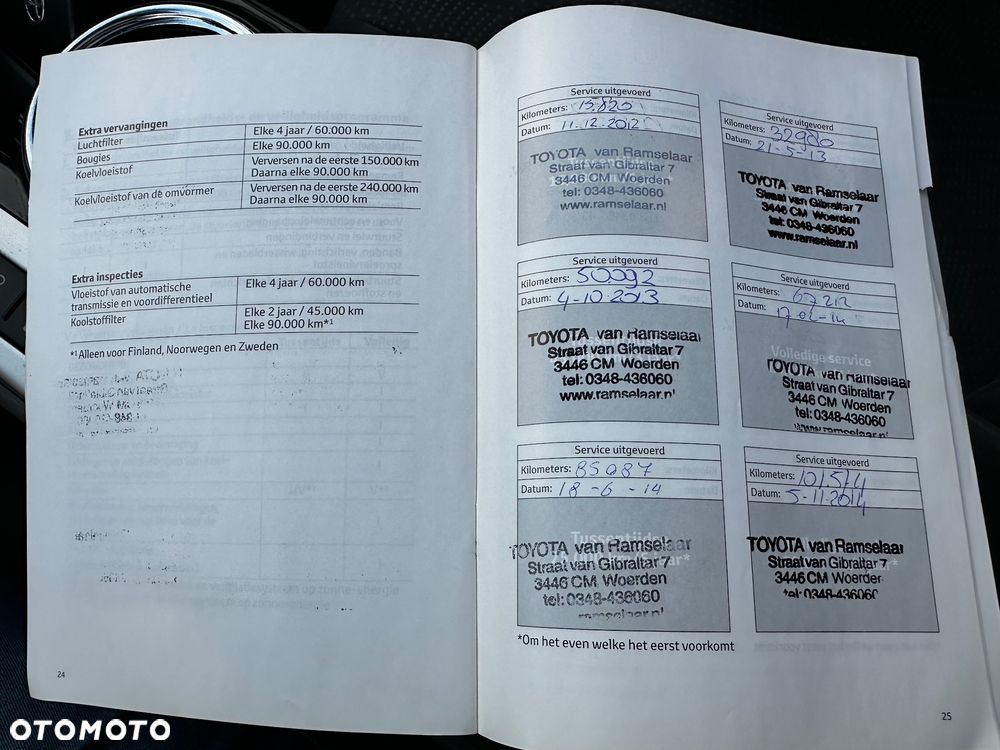 Extra vervangingen
Luchtfilter Elke 4 jaar / 60.000 km
Bougies Elke 90.000 km
Koelvloeistof Verversen na de eerste 150.000 km
Daarna elke 90.000 km
Koelvloeistof van de omvormer Verversen na de eerste 240.000 km
Daarna elke 90.000 km
Extra inspecties
Vloeistof van automatische transmissie en voordifferentieel Elke 4 jaar / 60.000 km
Koolstoffilter Elke 2 jaar / 45.000 km
Elke 90.000 km*1
*1 Alleen voor Finland, Noorwegen en Zweden
24
Service uitgevoerd
Kilometers: 15.820
Datum: 11.12.2012
TOYOTA van Ramselaar
Straat van Gibraltar 7
3446 CM Woerden
tel: 0348-436060
www.ramselaar.nl
Service uitgevoerd
Kilometers: 32900
Datum: 21-5-13
TOYOTA van Ramselaar
Straat van Gibraltar 7
3446 CM Woerden
tel: 0348-436060
www.ramselaar.nl
Service uitgevoerd
Kilometers: 50.092
Datum: 4-10-2013
TOYOTA van Ramselaar
Straat van Gibraltar 7
3446 CM Woerden
tel: 0348-436060
www.ramselaar.nl
Service uitgevoerd
Kilometers: 67212
Datum: 17-02-14
Volledige service
TOYOTA van Ramselaar
Straat van Gibraltar 7
3446 CM Woerden
tel: 0348-436060
www.ramselaar.nl
Service uitgevoerd
Kilometers: 85087
Datum: 18-6-14
Tussentijdse
TOYOTA van Ramselaar
Straat van Gibraltar 7
3446 CM Woerden
tel: 0348-436060
ramselaar.nl
Service uitgevoerd
Kilometers: 101.574
Datum: 5-11-2014
TOYOTA van Ramselaar
Straat van Gibraltar 7
3446 CM Woerden
tel: 0348-436060
*Om het even welke het eerst voorkomt
25
OTOMOTO